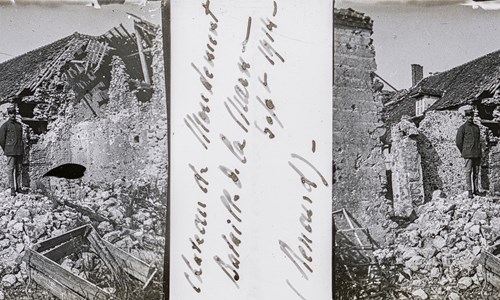 Château de Mondement
Bataille de la Marne
Sept 1914